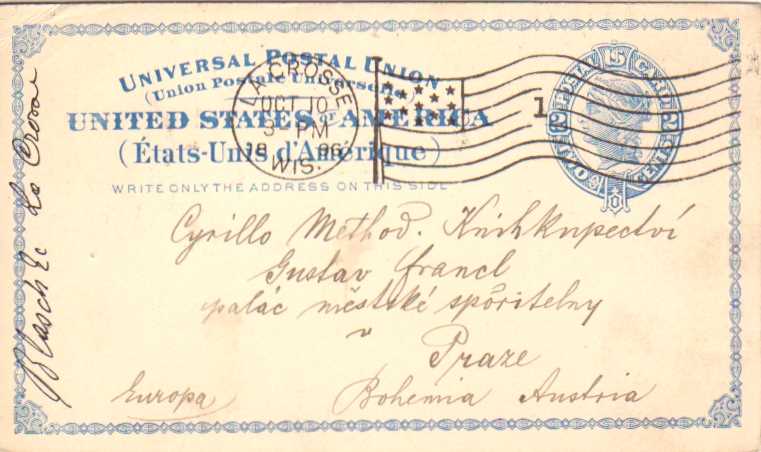 UNIVERSAL POSTAL UNION
(Union Postale Universelle)
UNITED STATES OF AMERICA
(États-Unis d'Amérique)
WRITE ONLY THE ADDRESS ON THIS SIDE
LA CROSSE
OCT 10
3 PM
1896
WIS.
1
U S
POSTAL CARD
2 2
TWO CENTS
Cyrillo Method. Knihkupectví
Gustav Francl
palác městské spořitelny
v
Praze
Europa Bohemia Austria
La Crosse